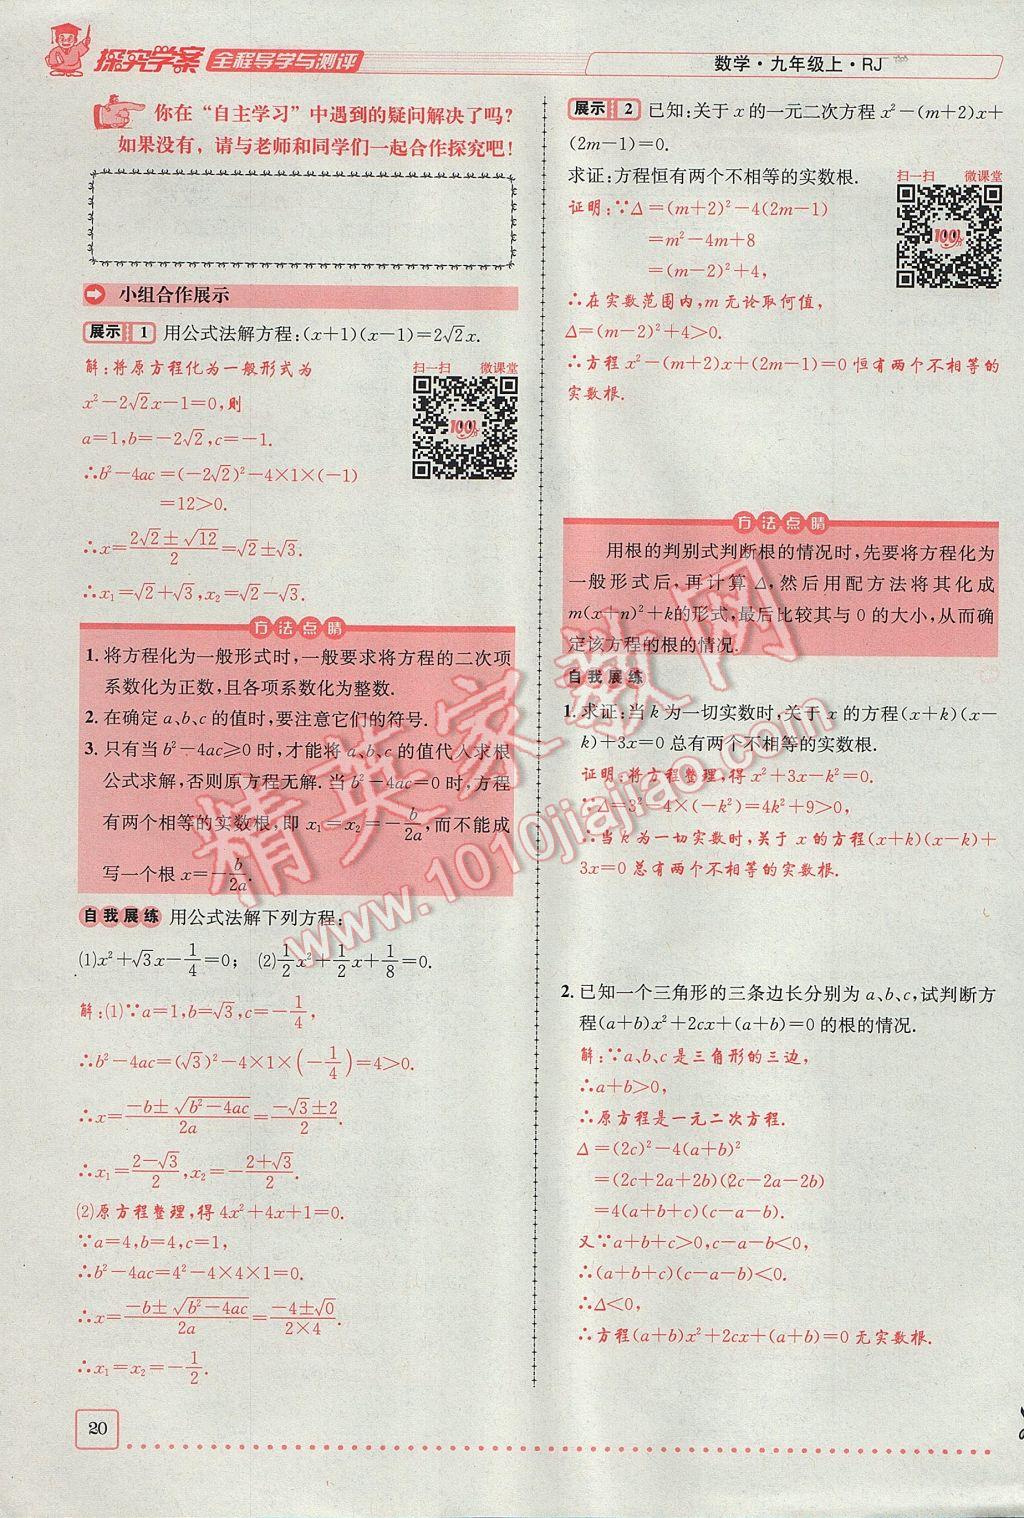 探究学案 全程导学与测评
数学·九年级上·RJ
你在“自主学习”中遇到的疑问解决了吗?
如果没有,请与老师和同学们一起合作探究吧!
小组合作展示
展示 1 用公式法解方程:(x+1)(x-1)=2√2x.
扫一扫 微课堂
解:将原方程化为一般形式为
x²-2√2x-1=0,则
a=1,b=-2√2,c=-1.
∴b²-4ac=(-2√2)²-4×1×(-1)
=12>0.
∴x=(2√2±√12)/2=√2±√3.
∴x₁=√2+√3,x₂=√2-√3.
方法点睛
1. 将方程化为一般形式时,一般要求将方程的二次项
系数化为正数,且各项系数化为整数.
2. 在确定a、b、c的值时,要注意它们的符号.
3. 只有当b²-4ac≥0时,才能将a、b、c的值代入求根
公式求解,否则原方程无解.当b²-4ac=0时,方程
有两个相等的实数根,即x₁=x₂=-b/2a,而不能成
写一个根x=-b/2a.
自我展练 用公式法解下列方程:
(1)x²+√3x-1/4=0; (2)1/2x²+1/2x+1/8=0.
解:(1)∵a=1,b=√3,c=-1/4,
∴b²-4ac=(√3)²-4×1×(-1/4)=4>0.
∴x=(-b±√(b²-4ac))/2a=(-√3±2)/2.
∴x₁=(2-√3)/2,x₂=-(2+√3)/2.
(2)原方程整理,得4x²+4x+1=0.
∵a=4,b=4,c=1,
∴b²-4ac=4²-4×4×1=0.
∴x=(-b±√(b²-4ac))/2a=(-4±√0)/(2×4).
∴x₁=x₂=-1/2.
20
展示 2 已知:关于x的一元二次方程x²-(m+2)x+
(2m-1)=0.
求证:方程恒有两个不相等的实数根.
扫一扫 微课堂
证明:∵Δ=(m+2)²-4(2m-1)
=m²-4m+8
=(m-2)²+4,
∴在实数范围内,m无论取何值,
Δ=(m-2)²+4>0.
∴方程x²-(m+2)x+(2m-1)=0恒有两个不相等的
实数根.
方法点睛
用根的判别式判断根的情况时,先要将方程化为
一般形式后,再计算Δ,然后用配方法将其化成
m(x+n)²+k的形式,最后比较其与0的大小,从而确
定该方程的根的情况.
自我展练
1. 求证:当k为一切实数时,关于x的方程(x+k)(x-
k)+3x=0总有两个不相等的实数根.
证明:将方程整理,得x²+3x-k²=0.
∵Δ=3²-4×(-k²)=4k²+9>0,
∴当k为一切实数时,关于x的方程(x+k)(x-k)+
3x=0总有两个不相等的实数根.
2. 已知一个三角形的三条边长分别为a、b、c,试判断方
程(a+b)x²+2cx+(a+b)=0的根的情况.
解:∵a、b、c是三角形的三边,
∴a+b>0,
∴原方程是一元二次方程.
Δ=(2c)²-4(a+b)²
=(2c+2a+2b)(2c-2a-2b)
=4(a+b+c)(c-a-b)
又∵a+b+c>0,c-a-b<0,
∴(a+b+c)(c-a-b)<0.
∴Δ<0,
∴方程(a+b)x²+2cx+(a+b)=0无实数根.
精英家教网
www.1010jiajiao.com